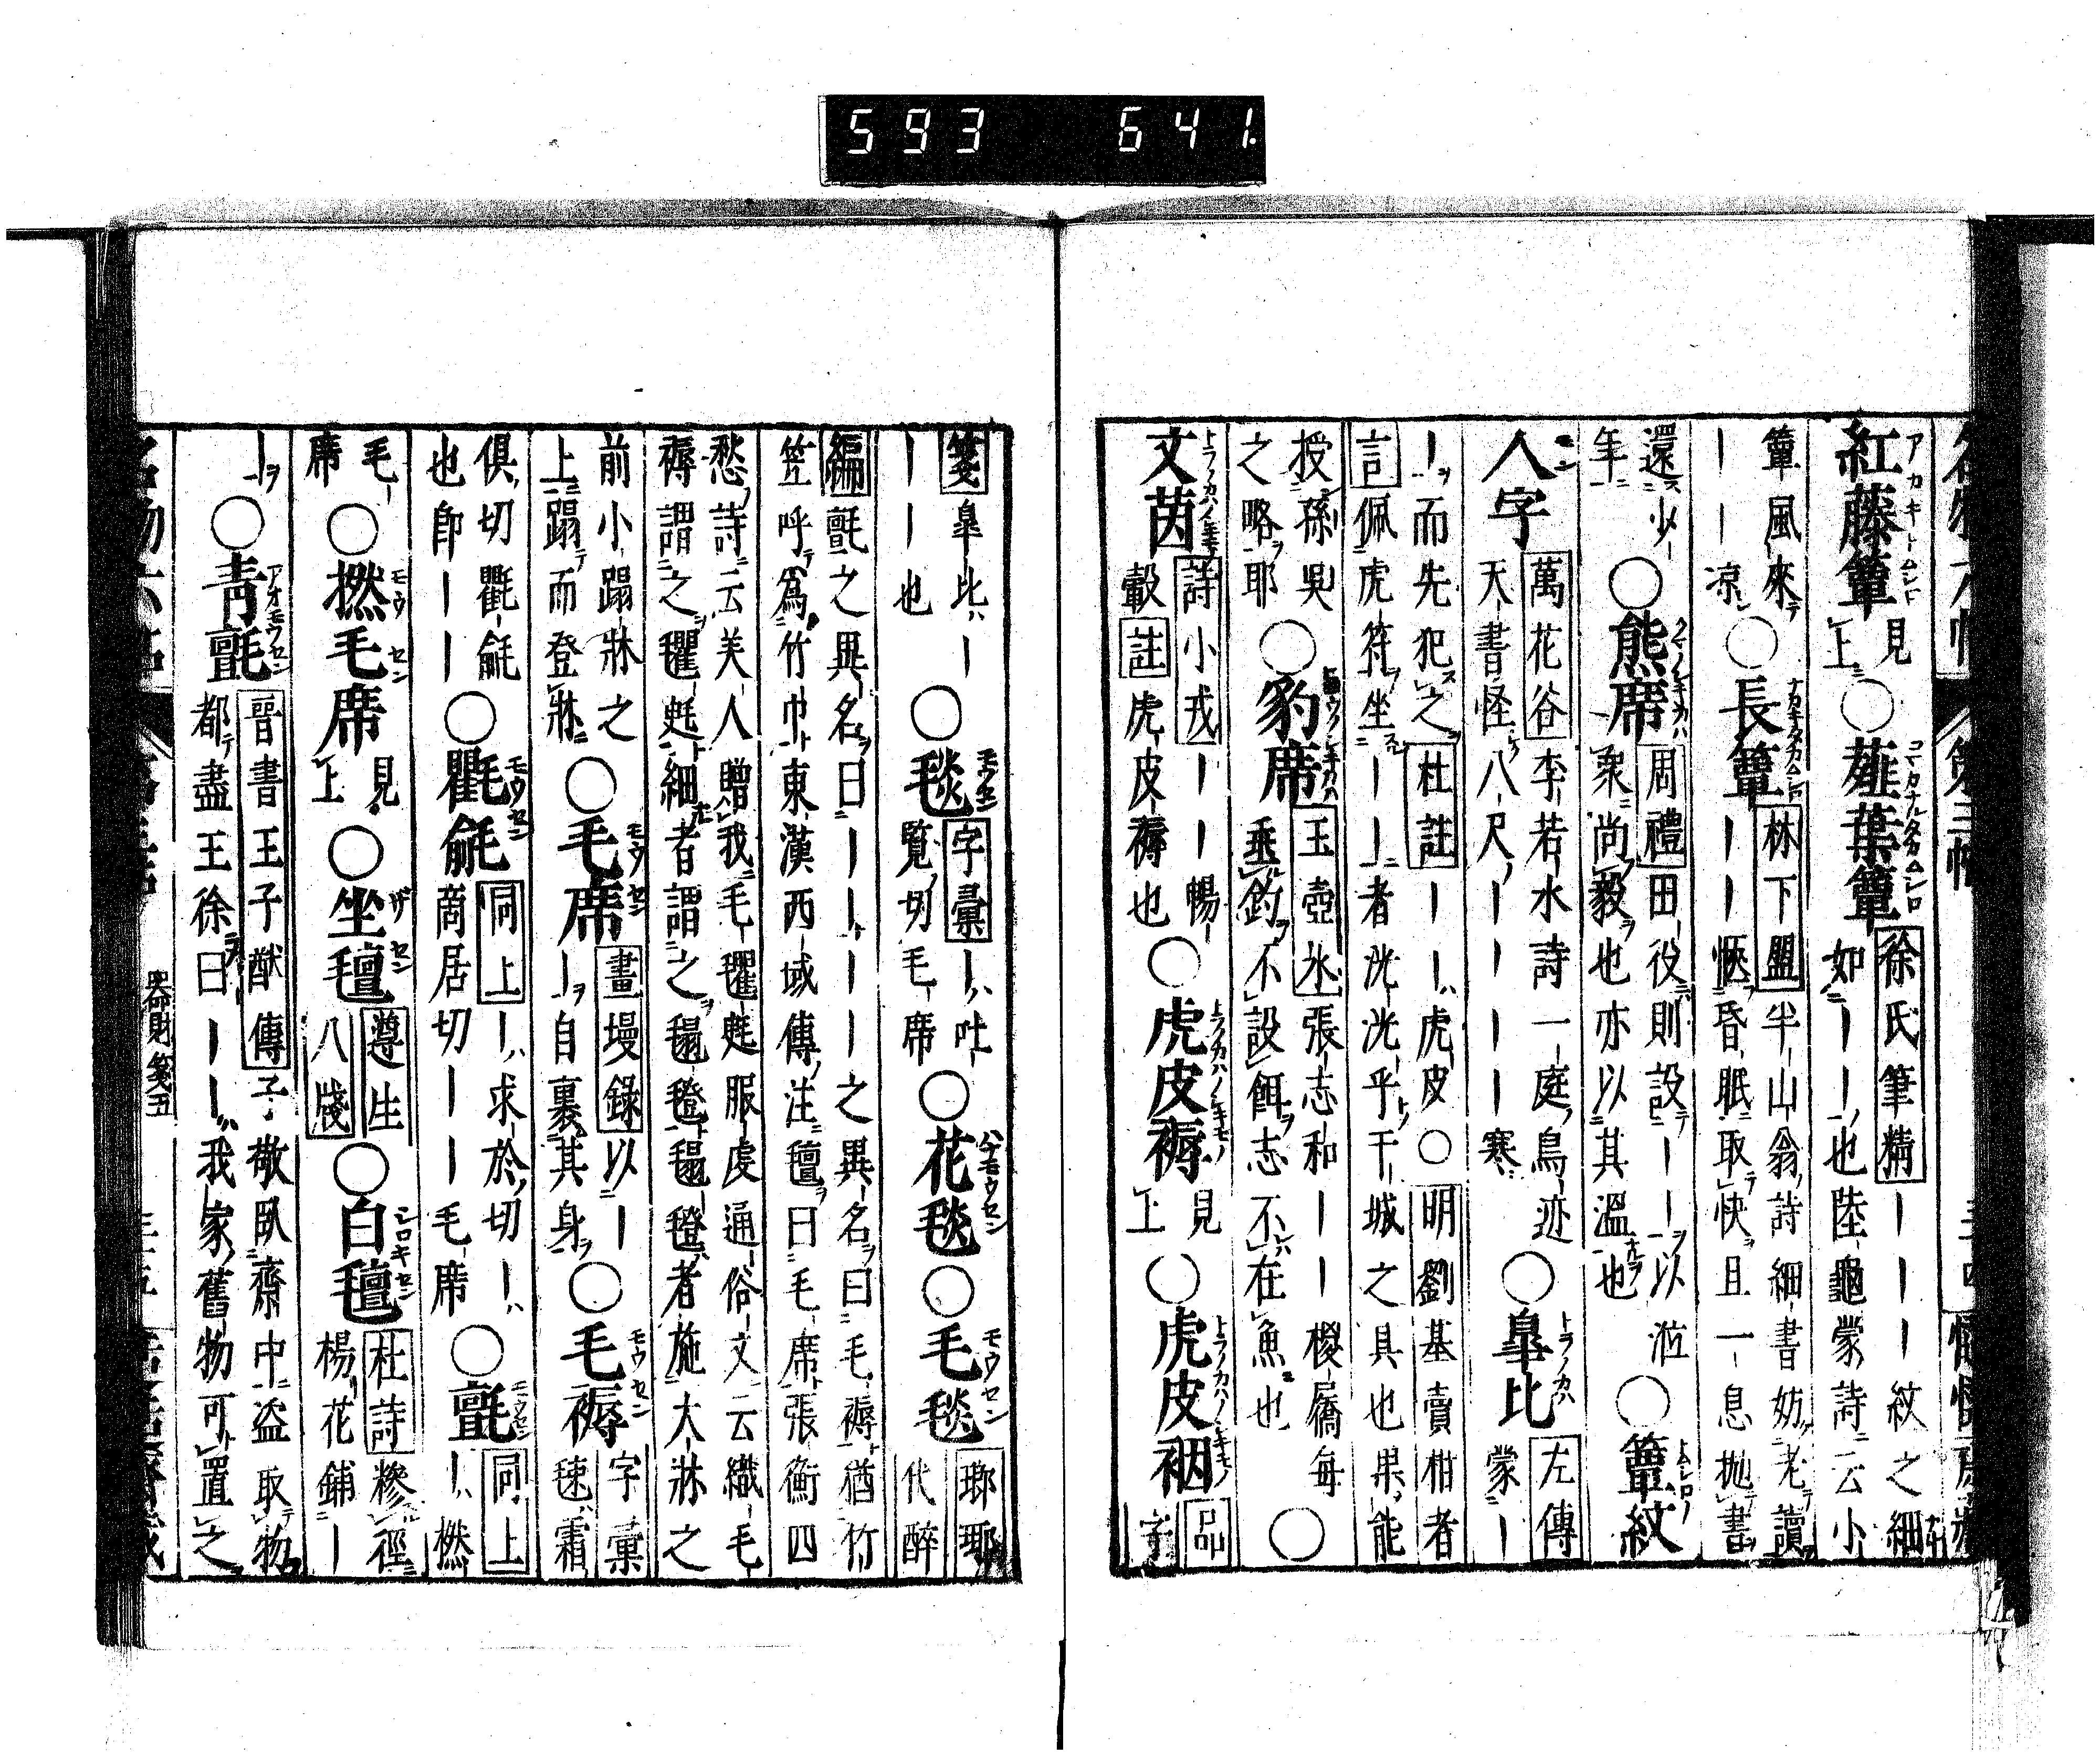 593 641.
紅藤簟見上○薤葉簟徐氏筆精｜｜｜紋之細如｜｜｜也陸龜蒙詩云小
簟風來｜｜凉○長簟林下盟半山翁詩細書妨老讀｜｜愜昏眠取快且一息抛書
還少年○熊席周禮田役則設｜｜以衆尚毅也亦以其溫也○簟紋
人字萬花谷李若水詩一庭鳥迹天書怪八尺｜｜｜｜寒○皐比左傳蒙｜
｜而先犯之杜註｜｜虎皮○明劉基賣柑者言佩虎符坐｜｜者洸洸乎干城之具也果能
授孫吳之略耶○豹席玉壺氷張志和｜｜椶屩每垂釣不設餌志不在魚也○
文茵詩小戎｜｜暢轂註虎皮褥也○虎皮褥見上○虎皮裀品字
箋皐比｜｜｜也○毯字彙｜吐覧切毛席○花毯○毛毯瑯琊代醉
編氈之異名曰｜｜｜｜之異名曰毛褥猶竹笠呼爲竹巾東漢西域傳注氊曰毛席張衡四
愁詩云美人贈我毛氍毹服虔通俗文云織毛褥謂之氍毹細者謂之毾㲪毾㲪者施大牀之
前小蹋牀之上蹋而登牀○毛席畫墁錄以｜｜自裹其身○毛褥字彙毡霜
俱切氍毹也卽｜｜○氍毹同上｜求於切｜商居切｜｜毛席○氈同上｜撚
毛席○撚毛席見上○坐氊遵生八牋○白氊杜詩糝徑楊花鋪｜
｜○青氈晉書王子猷傳子敬臥齋中盜取物都盡王徐曰｜｜我家舊物可置之
器財箋五